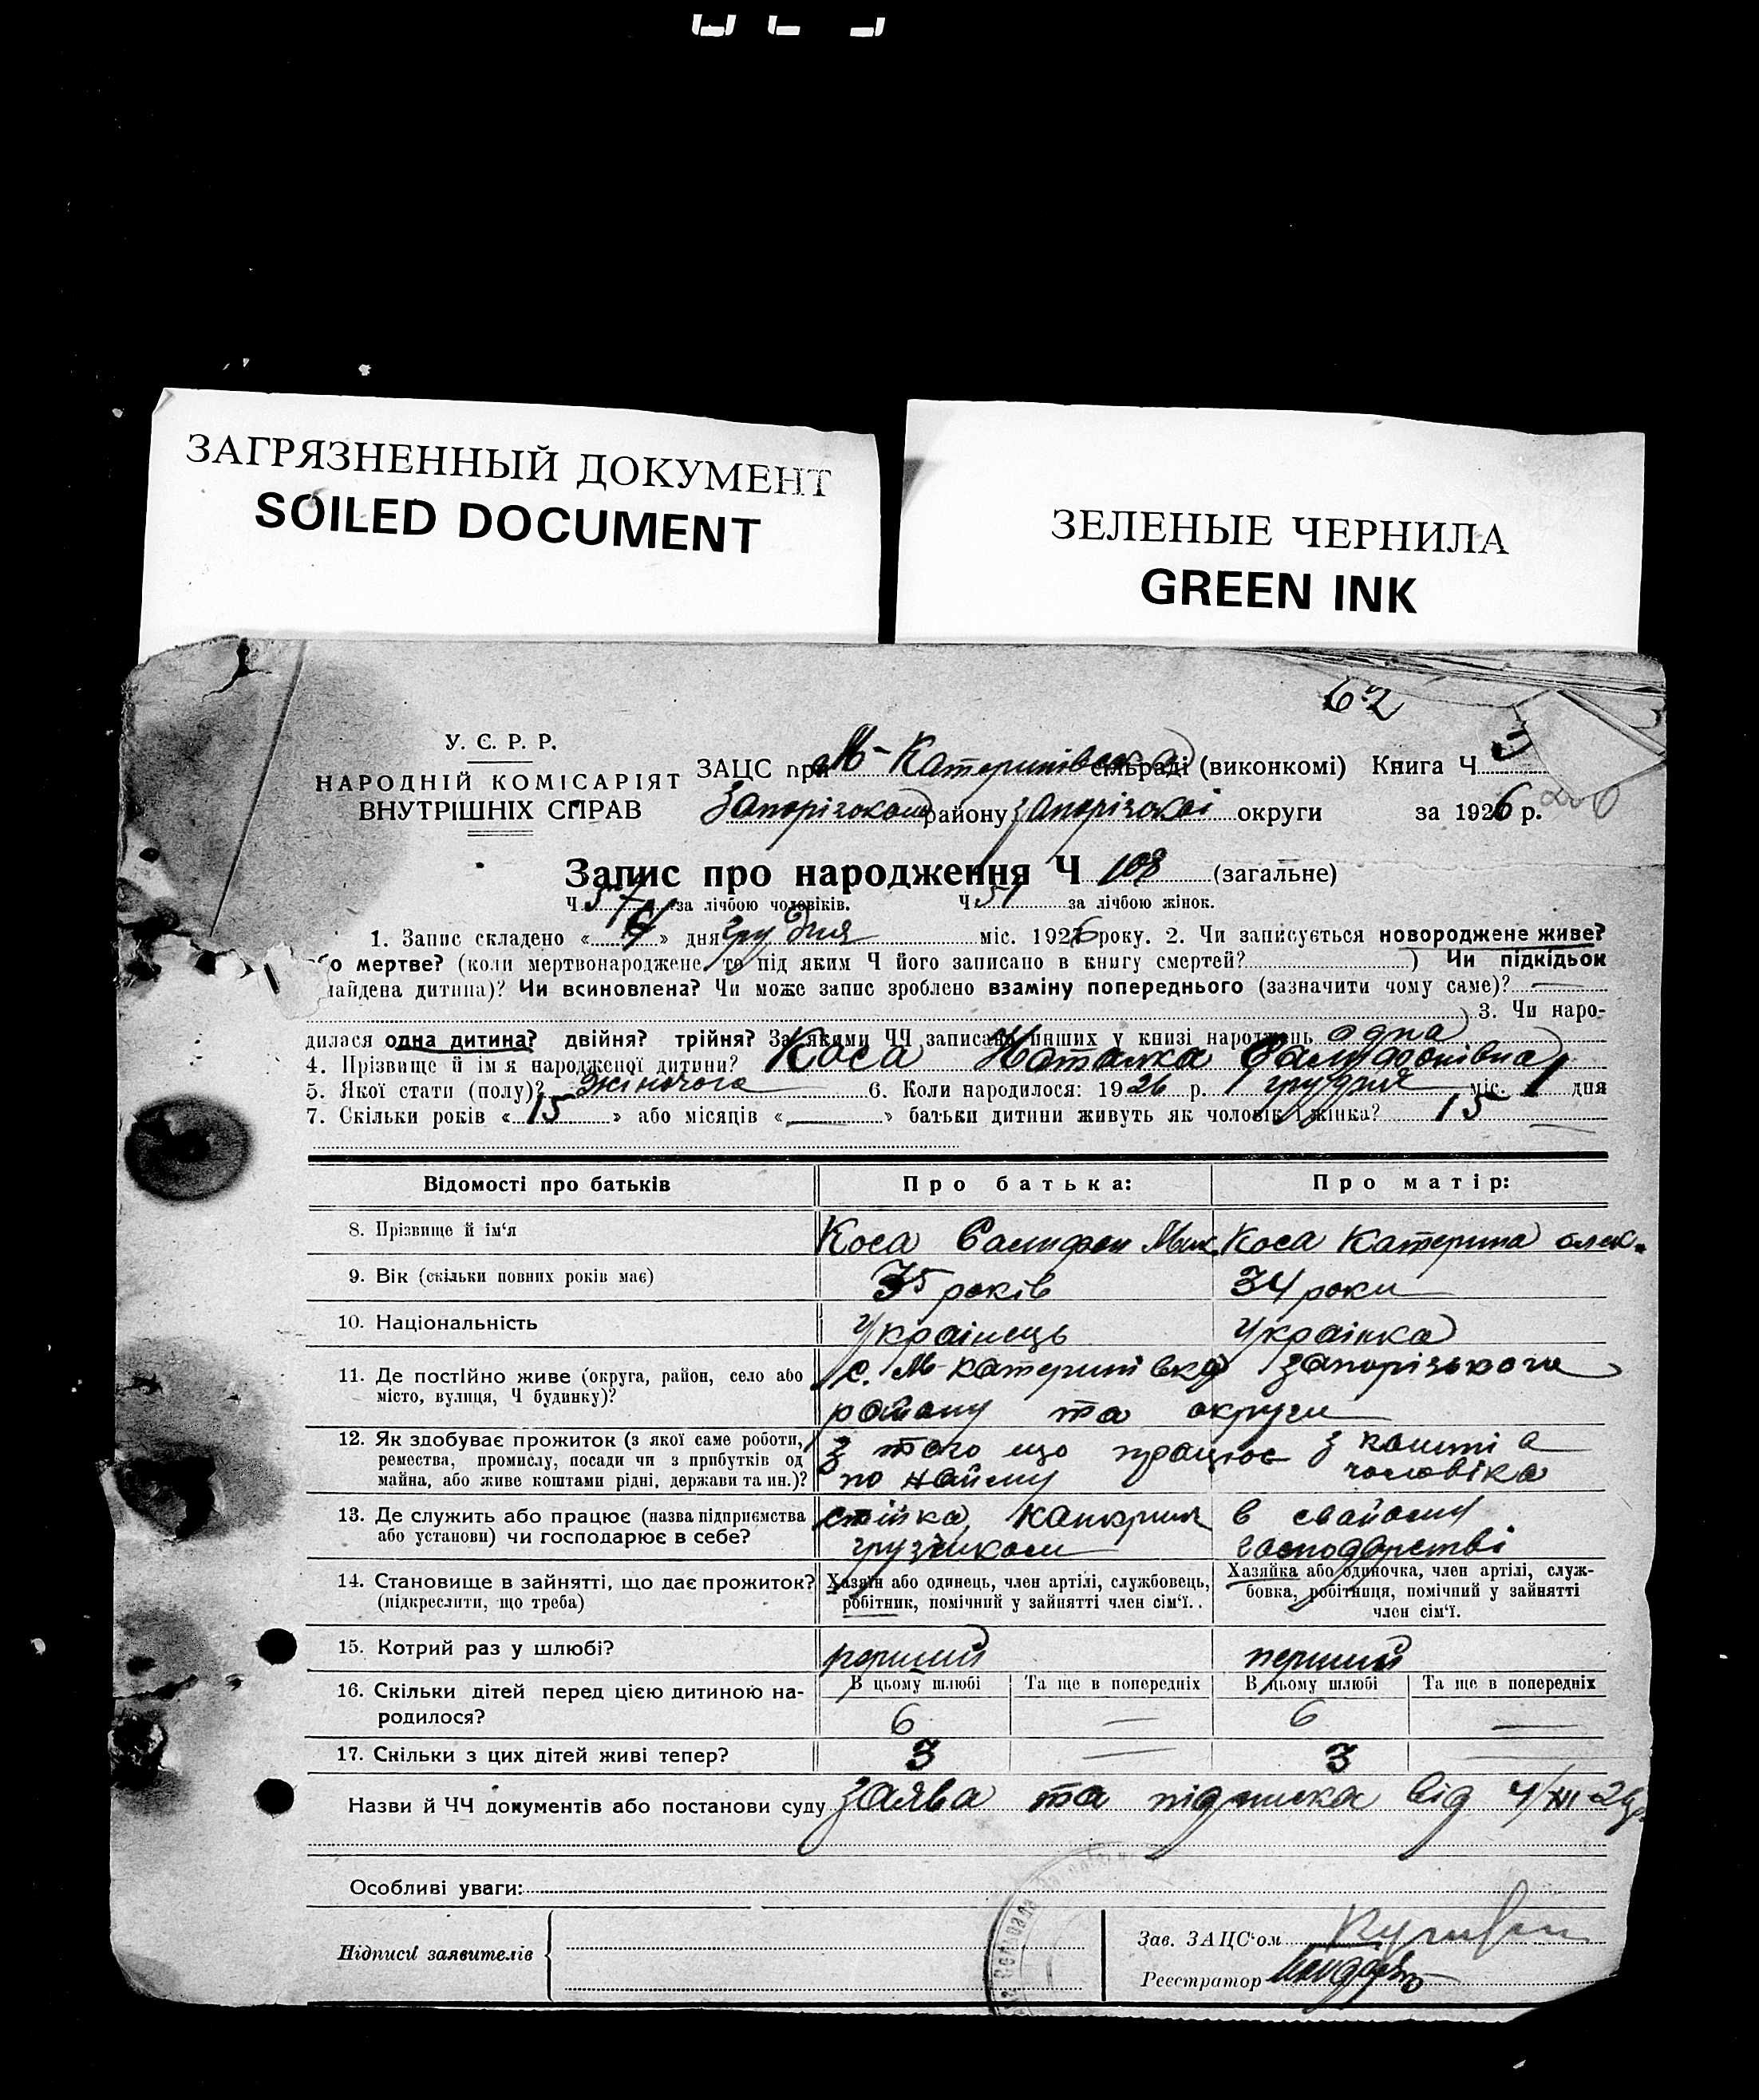 ЗАГРЯЗНЕННЫЙ ДОКУМЕНТ
SOILED DOCUMENT
ЗЕЛЕНЫЕ ЧЕРНИЛА
GREEN INK
62
У. С. Р. Р.
НАРОДНІЙ КОМІСАРІЯТ
ВНУТРІШНІХ СПРАВ
ЗАЦС при М-Катеринівська сільраді (виконкомі) Книга Ч.
Запорізького району Запорізької округи за 1926 р.
Запис про народження Ч 108 (загальне)
Ч 57 за лічбою чоловіків. Ч 51 за лічбою жінок.
1. Запис складено « 4 » дня грудня міс. 1926 року. 2. Чи записується новороджене живе?
бо мертве? (коли мертвонароджене, то під яким Ч його записано в книгу смертей? ) Чи підкідьок
найдена дитина)? Чи всиновлена? Чи може запис зроблено взаміну попереднього (зазначити чому саме)? —
3. Чи наро-
дилася одна дитина? двійня? трійня? За якими ЧЧ записано инших у книзі народжень одна
4. Прізвище й ім'я народженої дитини? Коса Наталка
5. Якої стати (полу)? жіночого 6. Коли народилося: 1926 р. грудня міс. 1 дня
7. Скільки років « 15 » або місяців « — » батьки дитини живуть як чоловік і жінка? 15
Відомості про батьків Про батька: Про матір:
8. Прізвище й ім'я Коса Коса Катерина Олек.
9. Вік (скільки повних років має) 35 років 34 роки
10. Національність Українець Українка
11. Де постійно живе (округа, район, село або
місто, вулиця, Ч будинку)? с. М-Катеринівка Запорізького
району та округи
12. Як здобуває прожиток (з якої саме роботи,
ремества, промислу, посади чи з прибутків од
майна, або живе коштами рідні, держави та ин.)? з того що працює по найму з кошті а чоловіка
13. Де служить або працює (назва підприємства
або установи) чи господарює в себе? грузчиком в свойому господарстві
14. Становище в зайнятті, що дає прожиток?
(підкреслити, що треба)
Хазяїн або одинець, член артілі, службовець,
робітник, помічний у зайнятті член сім'ї..
Хазяйка або одиночка, член артілі, служ-
бовка, робітниця, помічний у зайнятті
член сім'ї.
15. Котрий раз у шлюбі? перший перший
16. Скільки дітей перед цією дитиною на-
родилося?
В цьому шлюбі Та ще в попередніх В цьому шлюбі Та ще в попередніх
6 — 6 —
17. Скільки з цих дітей живі тепер? 3 — 3 —
Назви й ЧЧ документів або постанови суду заява та підписка від 4/XII
Особливі уваги:
Підписи заявителів
Зав. ЗАЦС'ом
Реєстратор